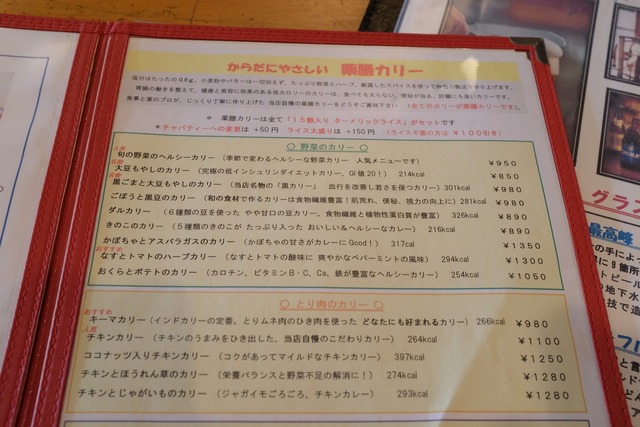 からだにやさしい 薬膳カリー
塩分はたったの0.8g。小麦粉やバターは一切加えず、たっぷり野菜とハーブ、厳選したスパイスを使って作り上げます。
胃腸の働きを整えて、健康と美容に効果のある低カロリーのカリーは、食べても太らない。便秘が治る、肝臓にも良いカリーです。
食事と薬のプロが、じっくり丁寧に作り上げた 当店自慢の薬膳カリーをどうぞご賞味下さい (全てのカリーが薬膳カリーです)。
＊ 薬膳カリーは全て「15穀入り ターメリックライス」がセットです
＊チャパティーへの変更は ＋50円 ライス大盛りは ＋150円 (ライス不要の方は ￥100引き)
○ 野菜のカリー ○
人気
旬の野菜のヘルシーカリー (季節で変わるヘルシーな野菜カリー 人気メニューです) ￥950
大豆もやしのカリー (究極の低インシュリンダイエットカリー、G値20！) 214kcal ￥850
黒ごまと大豆もやしのカリー (当店名物の「黒カリー」 血行を改善し若さを保つカリー) 301kcal ￥980
ごぼうと黒豆のカリー (和の食材で作るカリーは食物繊維豊富！肌荒れ、便秘、視力の向上に) 281kcal ￥980
ダルカリー (６種類の豆を使った やや甘口の豆カリー、食物繊維と植物性蛋白質が豊富) 326kcal ￥890
きのこのカリー (５種類のきのこが たっぷり入った おいしい＆ヘルシーなカリー) 216kcal ￥890
かぼちゃとアスパラガスのカリー (かぼちゃの甘さがカレーにGood！) 317cal ￥1350
おすすめ
なすとトマトのハーブカリー (なすとトマトの酸味に 爽やかなペパーミントの風味) 294kcal ￥1300
おくらとポテトのカリー (カロチン、ビタミンB・C、Ca、鉄が豊富なヘルシーカリー) 254kcal ￥1050
○ とり肉のカリー ○
おすすめ
キーマカリー (インドカリーの定番。とりムネ肉のひき肉を使った どなたにも好まれるカリー) 266kcal ￥980
人気
チキンカリー (チキンのうまみをひき出した、当店自慢のこだわりカリー) 264kcal ￥1100
ココナッツ入りチキンカリー (コクがあってマイルドなチキンカリー) 397kcal ￥1250
チキンとほうれん草のカリー (栄養バランスと野菜不足の解消に！) 274kcal ￥1280
チキンとじゃがいものカリー (ジャガイモごろごろ、チキンカレー) 293kcal ￥1280
グラス
最高峰